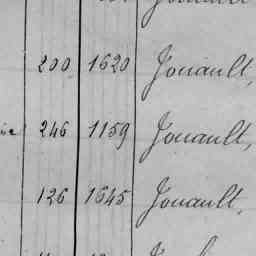 200 1620 Jouault,
246 1159 Jouault,
126 1645 Jouault,